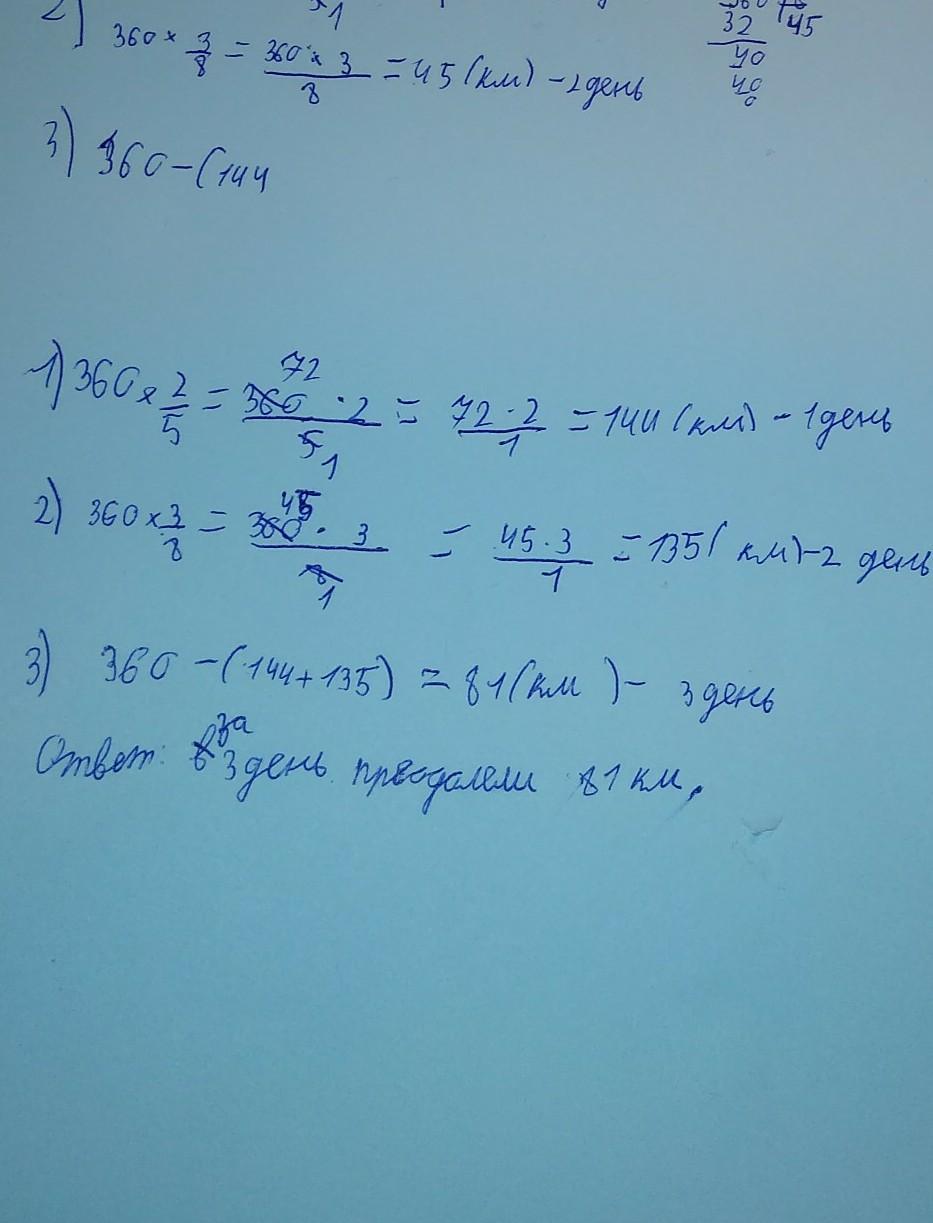 2)
1
360 × 3/8 = 360 × 3 / 8 = 45 (км) - 2 день
32 45
40
40
0
3) 360 - (144
72
1) 360 × 2/5 = 360 · 2 / 5 1 = 72 · 2 / 1 = 144 (км) - 1 день
45
2) 360 × 3/8 = 360 · 3 / 8 1 = 45 · 3 / 1 = 135 ( км) - 2 день
3) 360 - (144 + 135) = 81 (км ) - 3 день
за
Ответ: в 3 день преодалели 81 км.